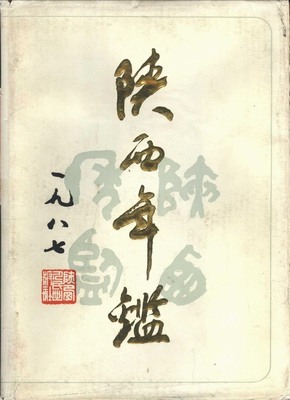 陕西年鑑
一九八七